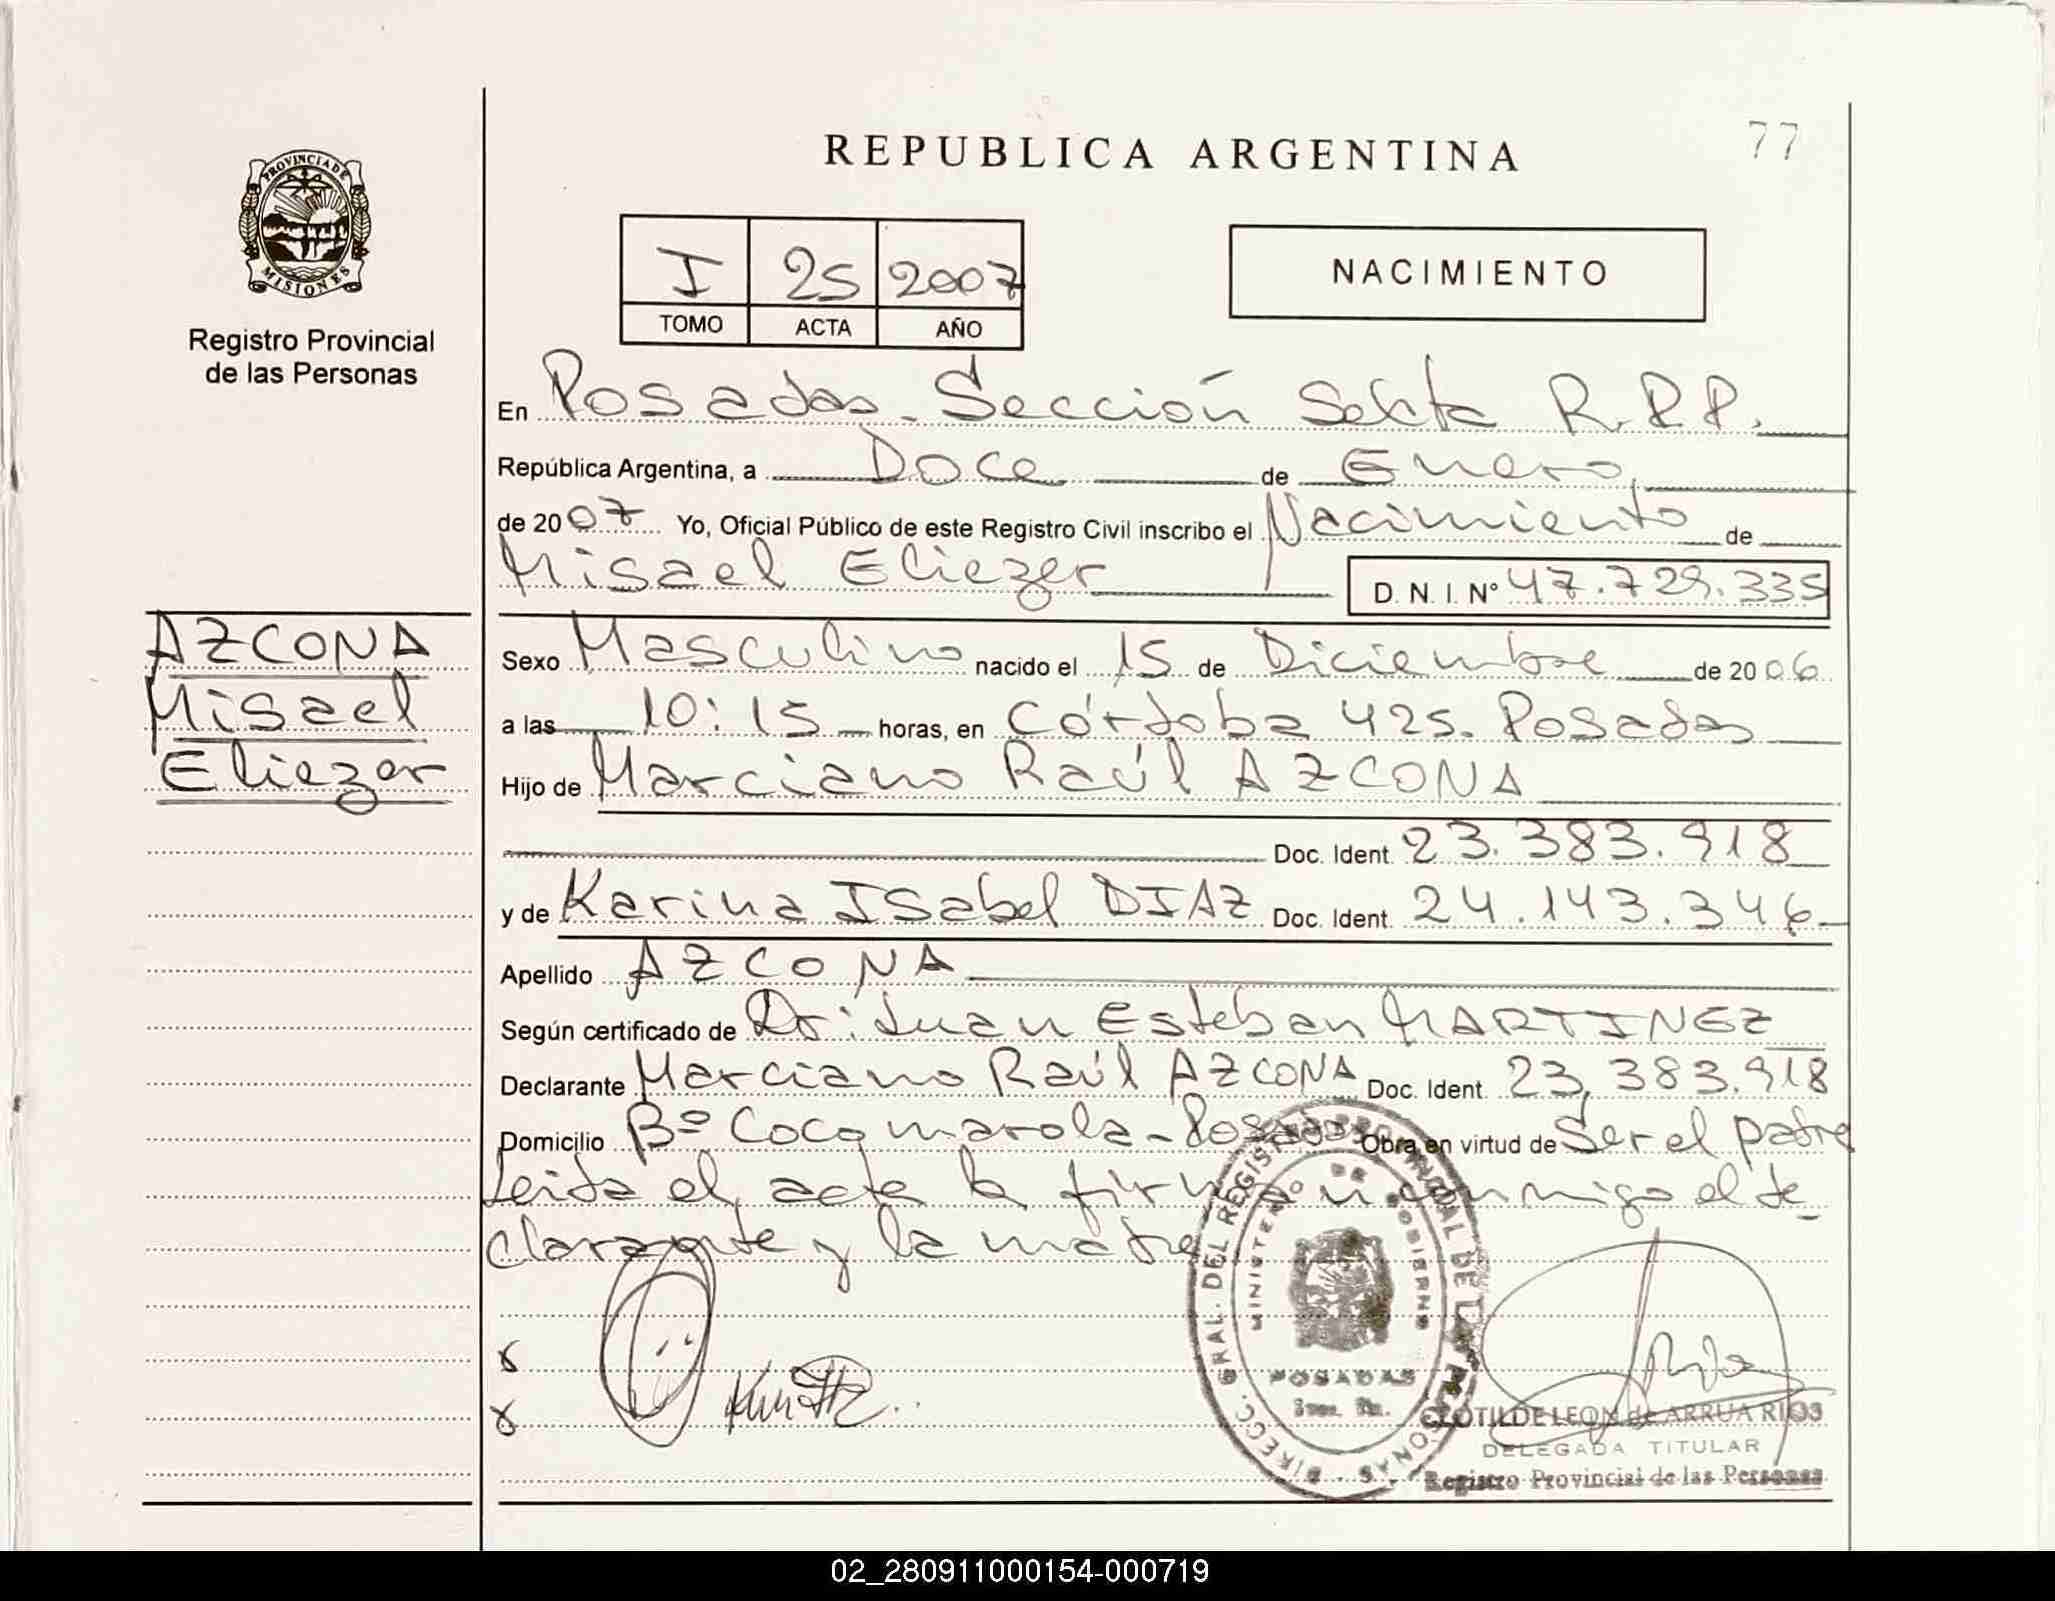 REPUBLICA ARGENTINA
77
PROVINCIA DE
MISIONES
Registro Provincial
de las Personas
I 25 2007
TOMO ACTA AÑO
NACIMIENTO
En Posadas - Sección Sexta R.P.P.
República Argentina, a Doce de Enero
de 2007 Yo, Oficial Público de este Registro Civil inscribo el Nacimiento de
Misael Eliezer D. N. I. N° 47.729.335
AZCONA
Misael
Eliezer
Sexo Masculino nacido el 15 de Diciembre de 2006
a las 10:15 horas, en Córdoba 425. Posadas
Hijo de Marciano Raúl AZCONA
Doc. Ident. 23.383.918
y de Karina Isabel DIAZ Doc. Ident. 24.143.346
Apellido AZCONA
Según certificado de Dr: Juan Esteban MARTINEZ
Declarante Marciano Raúl AZCONA Doc. Ident. 23.383.918
Domicilio Bº Cocomarola - Posadas Obra en virtud de Ser el padre
Leida el acta la firman conmigo el de_
clarante y la madre
DIRECC. GRAL. DEL REGISTRO PROVINCIAL DE LAS PERSONAS
MINISTERIO DE GOBIERNO
POSADAS
CLOTILDE LEON de ARRUA RIOS
DELEGADA TITULAR
Registro Provincial de las Personas
02_280911000154-000719